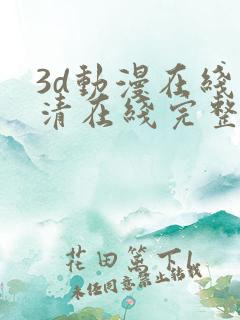 3d動漫在綫
清在綫完整
花田篱下l
未经同意禁止转载